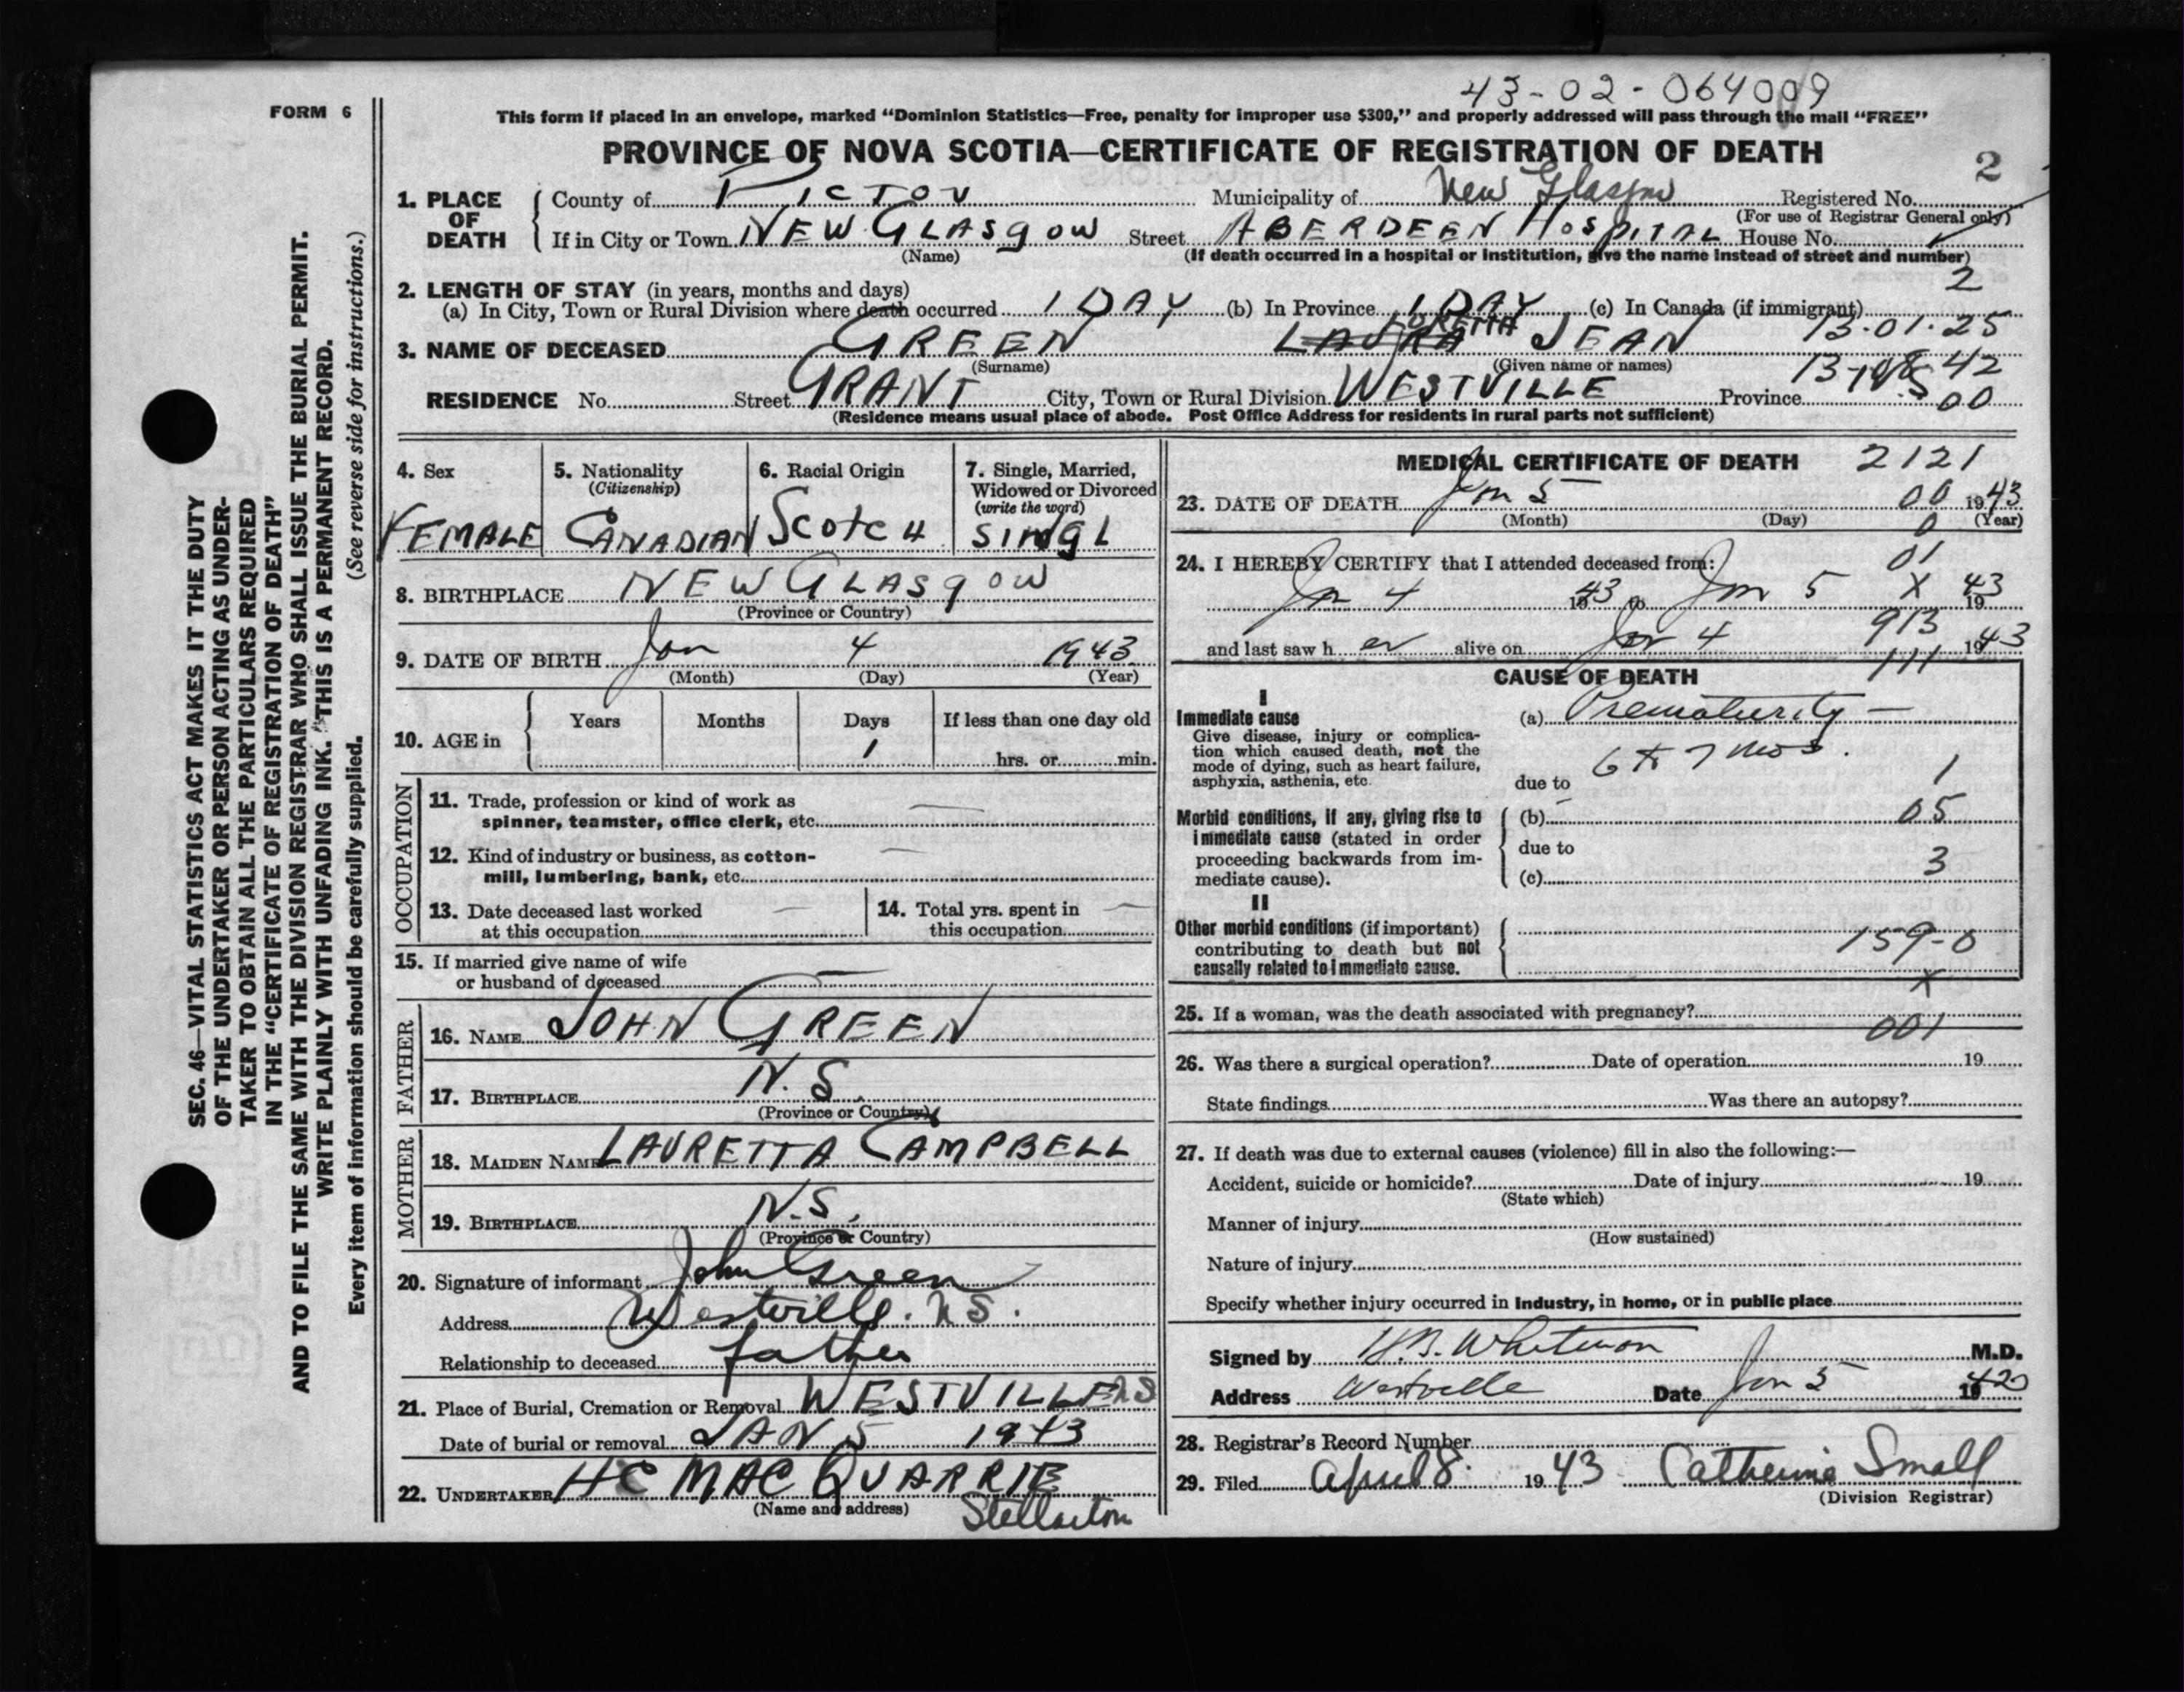 43-02-064009
FORM 6
This form if placed in an envelope, marked “Dominion Statistics—Free, penalty for improper use $300,” and properly addressed will pass through the mail “FREE”
PROVINCE OF NOVA SCOTIA—CERTIFICATE OF REGISTRATION OF DEATH
2
1. PLACE OF DEATH
County of PICTOU Municipality of New Glasgow Registered No.
(For use of Registrar General only)
If in City or Town NEW GLASGOW Street ABERDEEN HOSPITAL House No.
(Name) (If death occurred in a hospital or institution, give the name instead of street and number)
2. LENGTH OF STAY (in years, months and days) 2
(a) In City, Town or Rural Division where death occurred 1 DAY (b) In Province 1 DAY (c) In Canada (if immigrant)
3. NAME OF DECEASED GREEN LAURA LORETTA JEAN 13-01-25
(Surname) (Given name or names)
13-108-42
RESIDENCE No. Street GRANT City, Town or Rural Division WESTVILLE Province N.S 00
(Residence means usual place of abode. Post Office Address for residents in rural parts not sufficient)
SEC. 46—VITAL STATISTICS ACT MAKES IT THE DUTY
OF THE UNDERTAKER OR PERSON ACTING AS UNDER-
TAKER TO OBTAIN ALL THE PARTICULARS REQUIRED
IN THE “CERTIFICATE OF REGISTRATION OF DEATH”
AND TO FILE THE SAME WITH THE DIVISION REGISTRAR WHO SHALL ISSUE THE BURIAL PERMIT.
WRITE PLAINLY WITH UNFADING INK. THIS IS A PERMANENT RECORD.
Every item of information should be carefully supplied. (See reverse side for instructions.)
4. Sex
FEMALE
5. Nationality
(Citizenship)
CANADIAN
6. Racial Origin
SCOTCH
7. Single, Married,
Widowed or Divorced
(write the word)
SINGL
8. BIRTHPLACE NEW GLASGOW
(Province or Country)
9. DATE OF BIRTH Jan 4 1943
(Month) (Day) (Year)
10. AGE in Years Months Days If less than one day old
1 hrs. or min.
OCCUPATION
11. Trade, profession or kind of work as
spinner, teamster, office clerk, etc. —
12. Kind of industry or business, as cotton-
mill, lumbering, bank, etc. —
13. Date deceased last worked
at this occupation —
14. Total yrs. spent in
this occupation —
15. If married give name of wife
or husband of deceased —
FATHER
16. NAME JOHN GREEN
17. BIRTHPLACE N.S.
(Province or Country)
MOTHER
18. MAIDEN NAME LAURETTA CAMPBELL
19. BIRTHPLACE N.S.
(Province or Country)
20. Signature of informant John Green
Address Westville. N S.
Relationship to deceased father
21. Place of Burial, Cremation or Removal WESTVILLE NS
Date of burial or removal JAN 5 1943
22. UNDERTAKER H C MACQUARRIE
(Name and address) Stellarton
MEDICAL CERTIFICATE OF DEATH 2121
23. DATE OF DEATH Jan 5 00 1943
(Month) (Day) 0 (Year)
24. I HEREBY CERTIFY that I attended deceased from: 01
Jan 4 1943 to Jan 5 X 1943
913
and last saw h er alive on Jan 4 1943
111
CAUSE OF DEATH
I
Immediate cause
Give disease, injury or complica-
tion which caused death, not the
mode of dying, such as heart failure,
asphyxia, asthenia, etc.
(a) Prematurity —
6 to 7 mos.
due to 1
Morbid conditions, if any, giving rise to
immediate cause (stated in order
proceeding backwards from im-
mediate cause).
(b) 05
due to
(c) 3
II
Other morbid conditions (if important)
contributing to death but not
causally related to immediate cause.
159-0
X
25. If a woman, was the death associated with pregnancy?
001
26. Was there a surgical operation? Date of operation 19
State findings Was there an autopsy?
27. If death was due to external causes (violence) fill in also the following:—
Accident, suicide or homicide? Date of injury 19
(State which)
Manner of injury
(How sustained)
Nature of injury
Specify whether injury occurred in industry, in home, or in public place
Signed by Whitman M.D.
Address Westville Date Jan 5 19
28. Registrar's Record Number
29. Filed April 8. 1943 Catherine Small
(Division Registrar)